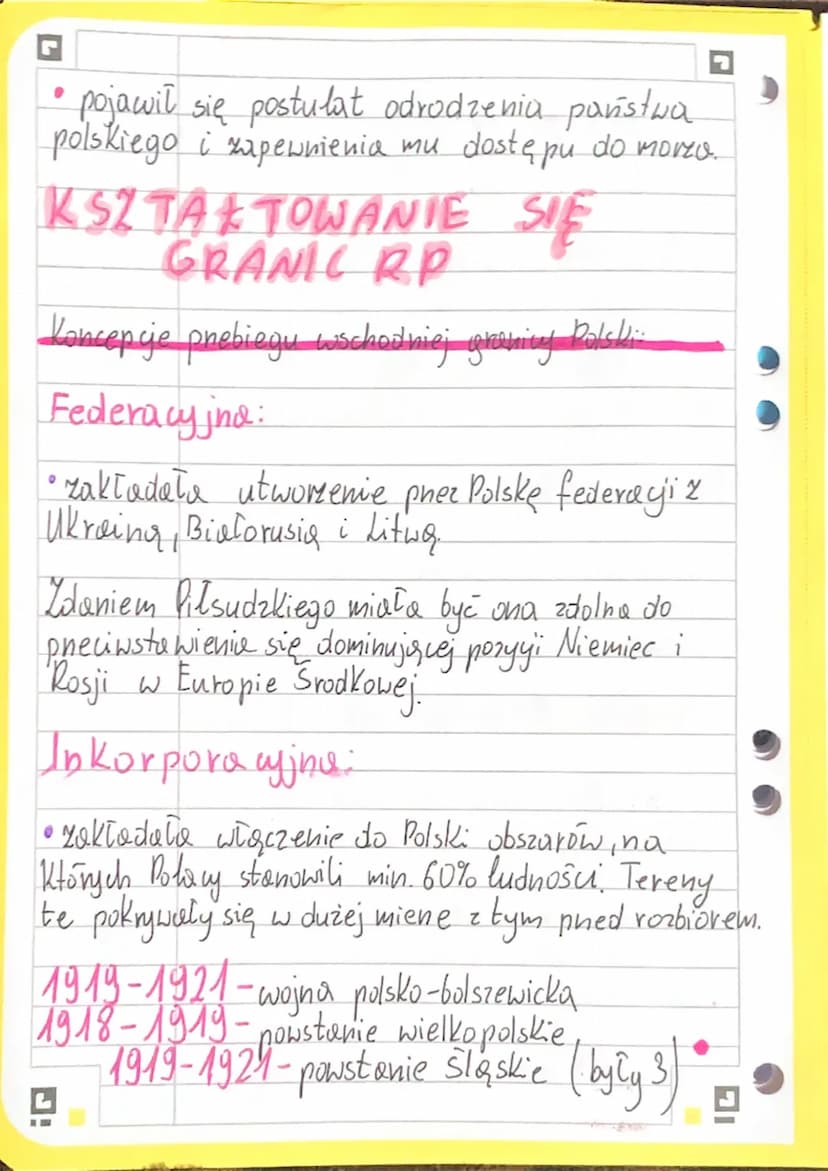 • pojawił się postulat odrodzenia państwa
polskiego i zapewnienia mu dostępu do morza.
KSZTAŁTOWANIE SIĘ
GRANIC RP
Koncepcje przebiegu wschodniej granicy Polski:
Federacyjna:
• zakładała utworzenie przez Polskę federacji z
Ukrainą, Białorusią i Litwą.
Zdaniem Piłsudzkiego miała być ona zdolna do
przeciwstawienia się dominującej pozycji Niemiec i
Rosji w Europie Środkowej.
Inkorporacyjna:
• zakładała włączenie do Polski obszarów, na
których Polacy stanowili min. 60% ludności. Tereny
te pokrywały się w dużej mierze z tym przed rozbiorem.
1919-1921-wojna polsko-bolszewicka
1918-1919-powstanie wielkopolskie
1919-1921-powstanie śląskie (były 3)